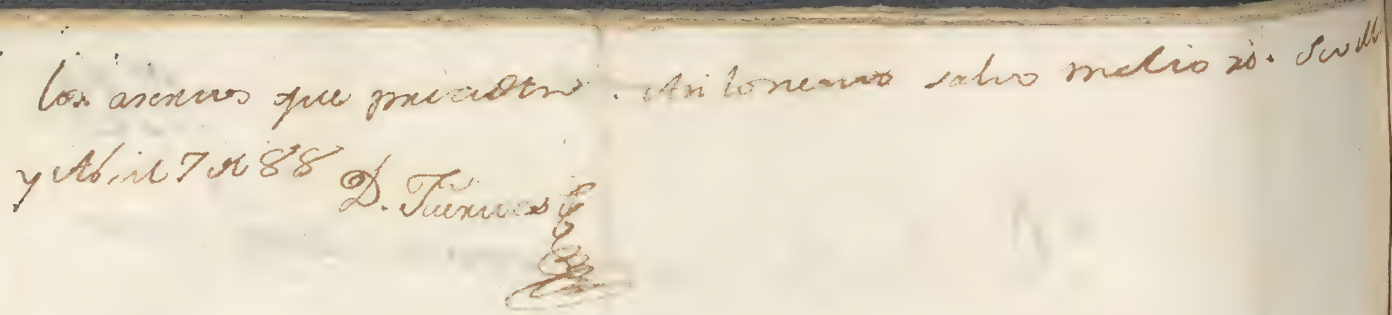 los asensos que preceden. Asi lo siento salvo meliori. Sevill
y Abril 7 de 88 D. Fuerues